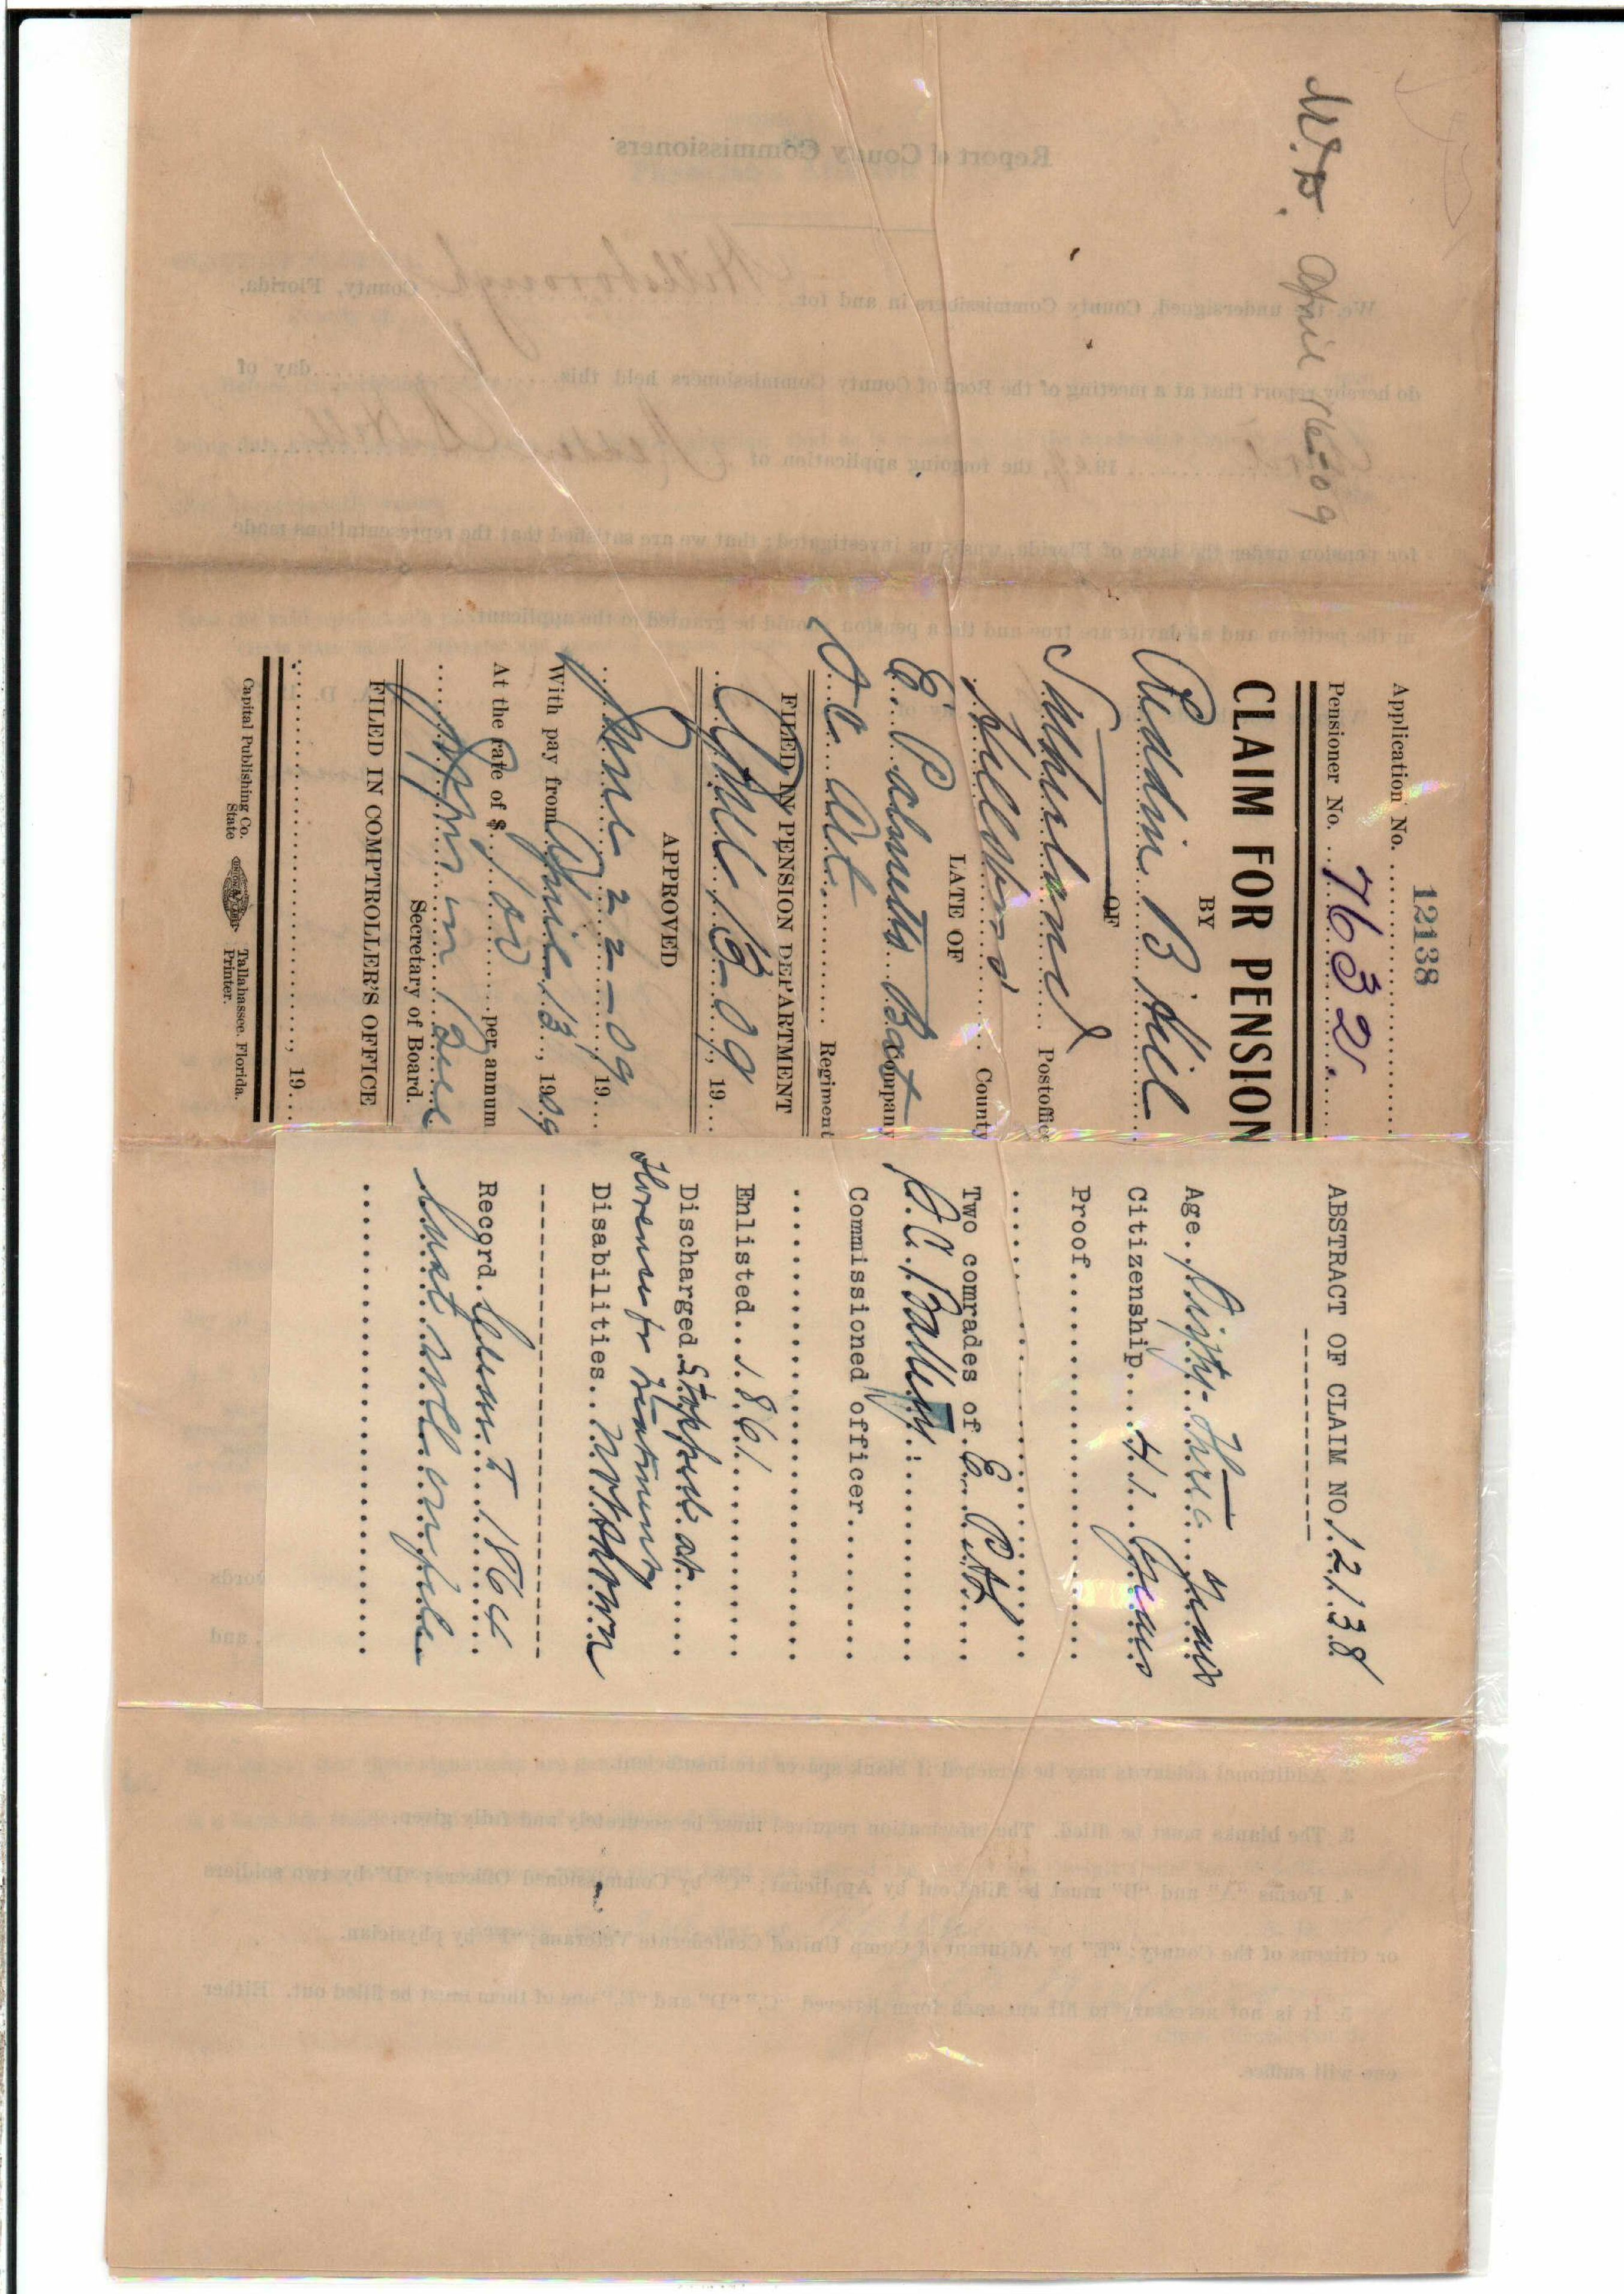 W.D. April 16-09
Application No. 12138
Pensioner No. 7632.
CLAIM FOR PENSION
BY
Reddin B Hill
OF
Sutherland Postoffice
Hillsboro' County
LATE OF
E. Palmetto Bat Company
Lt. Art. Regiment
FILED IN PENSION DEPARTMENT
April 13-09, 19...
APPROVED
June 22-09 19...
With pay from April 13, 1909
At the rate of $ 100 per annum
Secretary of Board.
FILED IN COMPTROLLER'S OFFICE
, 19...
Capital Publishing Co. Tallahassee, Florida.
State Printer.
ABSTRACT OF CLAIM NO. 12138
Age. Sixty-three years
Citizenship... 41 years
Proof
Two comrades of E. P. Art
Commissioned officer
Enlisted.. 1861
Discharged. Stopped at
Florence for treatment
Disabilities.. not shown
Record. 1864
must roll on file
Report of County Commissioners
We, the undersigned, County Commissioners in and for Hillsborough County, Florida,
do hereby report that at a meeting of the Bord of County Commissioners held this day of
190, the forgoing application of Hill
for pension under the laws of Florida, was by us investigated; that we are satisfied that the representations made
in the petition and affidavits are true and that a pension should be granted to the applicant.
Additional affidavits may be attached if blank spaces are insufficient.
3. The blanks must be filled. The information required must be accurately and fully given.
4. Forms "A" and "B" must be filled out by Applicant; "C" by Commissioned Officers; "D" by two soldiers
or citizens of the County; "E" by Adjutant of Camp United Confederate Veterans; "F" by physician.
5. It is not necessary to fill out each form lettered "C," "D" and "E," one of them must be filled out. Either
one will suffice.